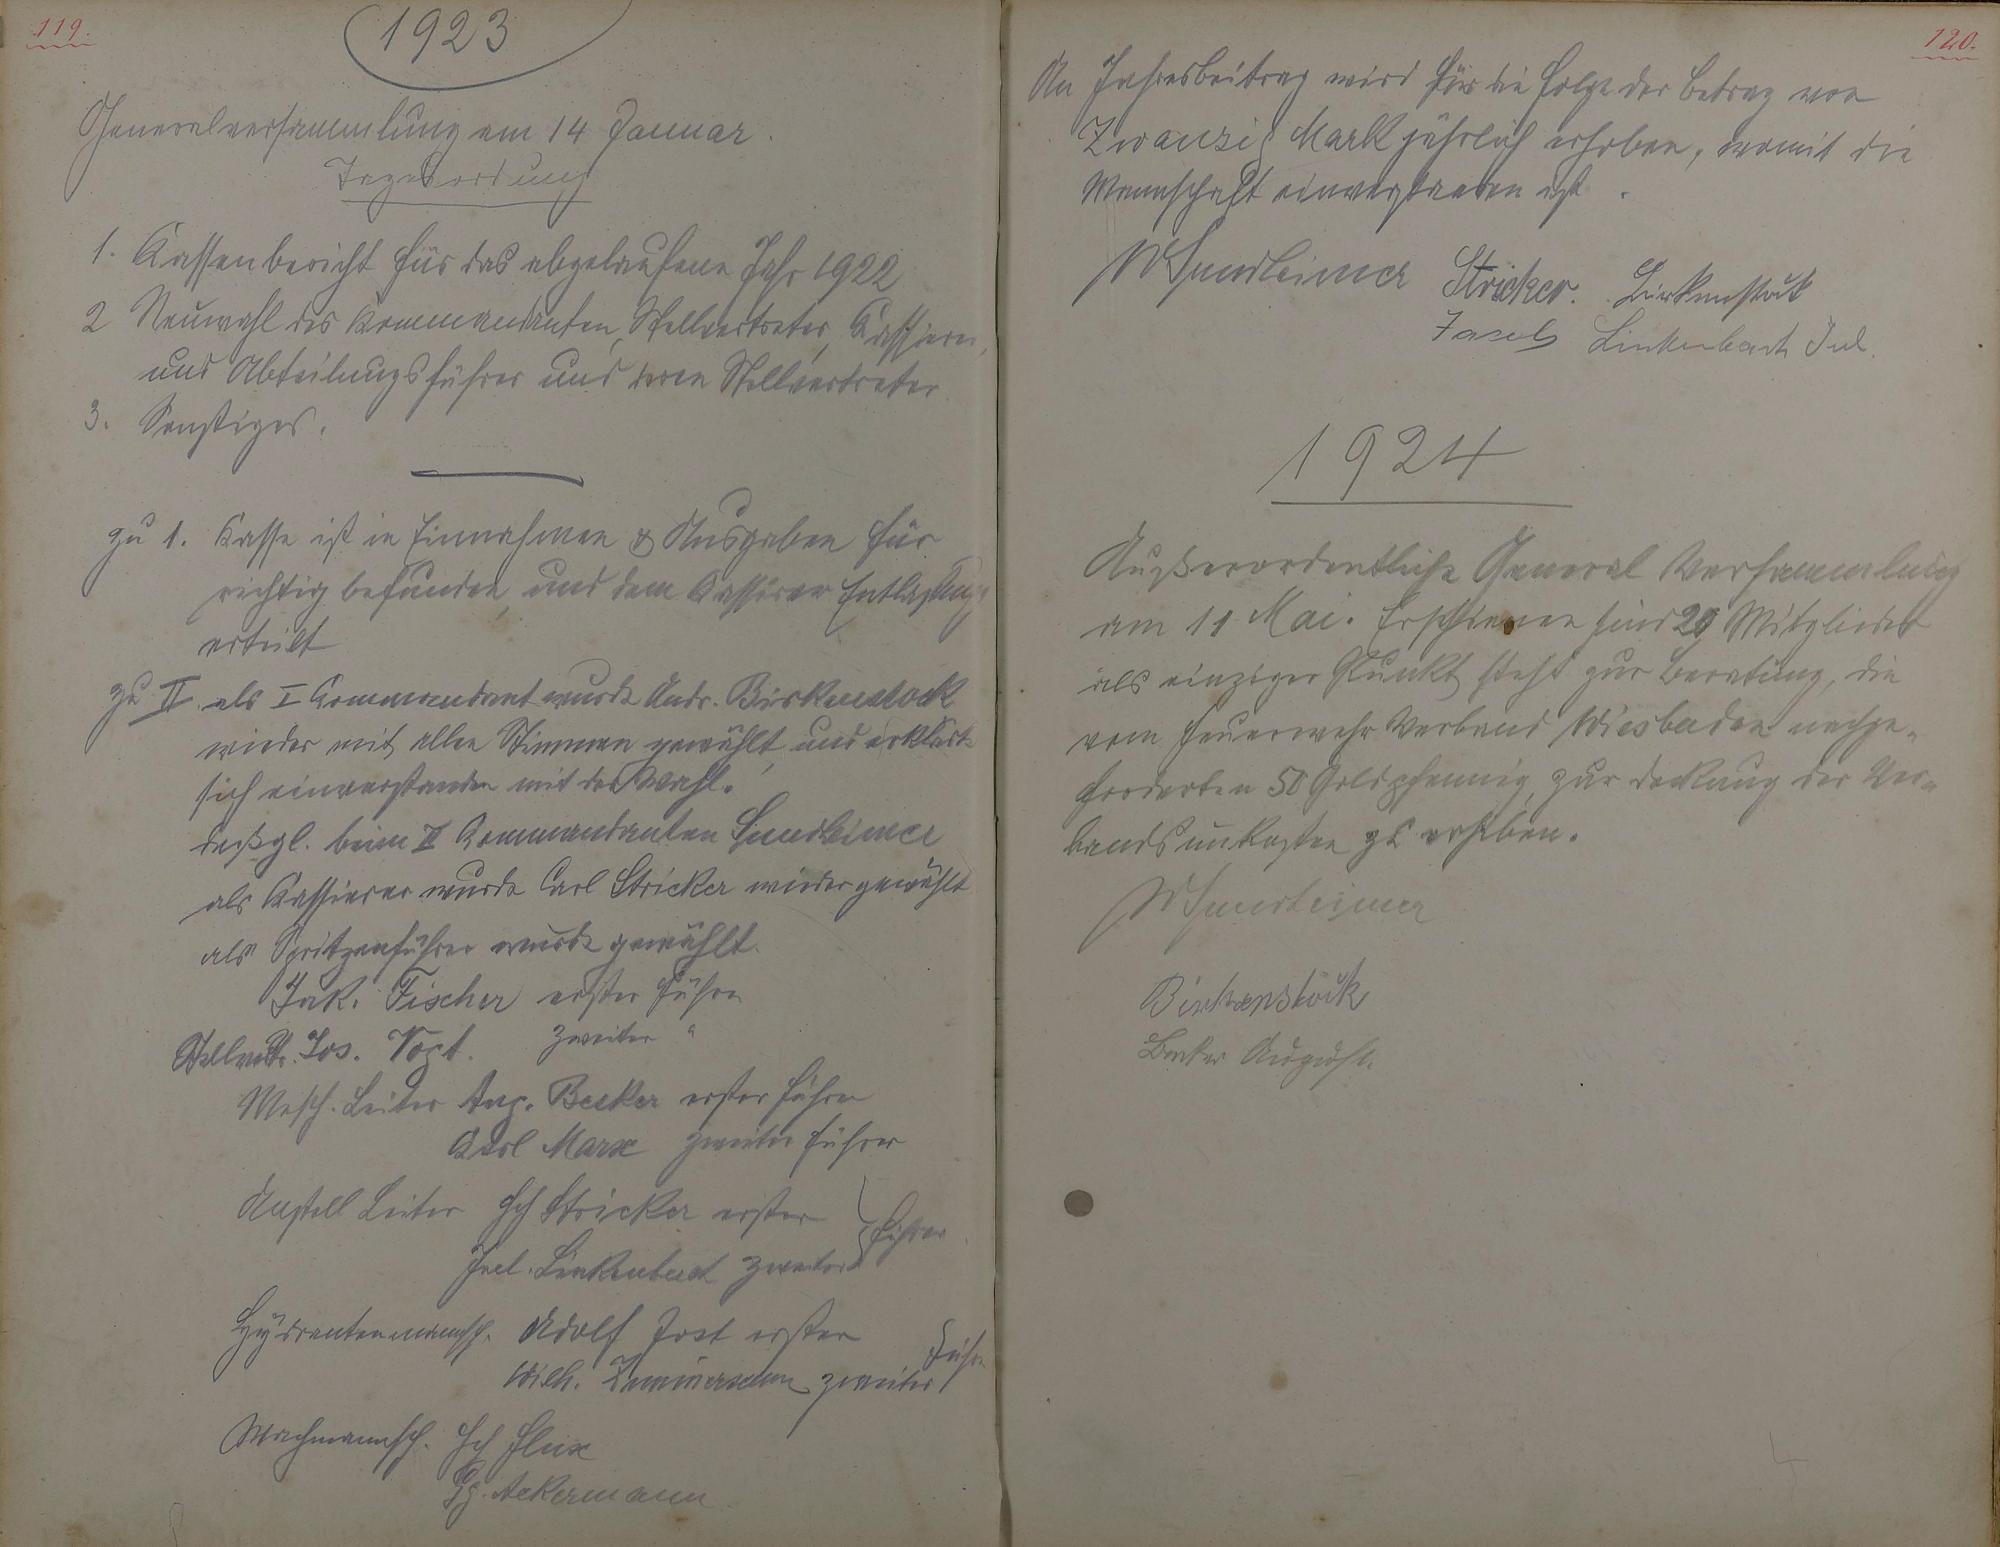 119.
1923
Generalversammlung am 14 Januar.
Tagesordnung
1. Kassenbericht für das abgelaufene Jahr 1922
2 Neuwahl des Kommandanten, Stellvertreter, Kassierer,
und Abteilungsführer und deren Stellvertreter
3. Sonstiges.
zu 1. Kasse ist in Einnahmen & Ausgaben für
richtig befunden, und dem Kassierer Entlastung
erteilt
zu II. als I Commandant wurde Andr. Birkenstock
wieder mit allen Stimmen gewählt und erklärt
sich einverstanden mit der Wahl.
desgl. beim II Commandanten
als Kassierer wurde Carl Stricker wiedergewählt
als Spritzenführer wurde gewählt.
Jak. Fischer erster Führer
Stellvertr. Jos. Vogt. zweiter "
Mesch. Leiter Aug. Becker erster Führer
Karl Marx zweiter Führer
Anstell Leiter Hch Stricker erster
Führer
Jul. Linkenbach zweiter
Hydrantenmannsch. Adolf Jost erster
Führer
Wilh. Zimmerschem zweiter
Wachmannsch. Hch Flux
Pg. Ackermann
120.
An Jahresbeitrag wird für die Folge der Betrag von
Zwanzig Mark jährlich erhoben, womit die
Mannschaft einverstanden ist.
Stricker. Birkenstock
Linkenbach Jul.
1924
Außerordentliche General Versammlung
am 11 Mai. Erschienen sind 20 Mitglieder
als einziger Punkt steht zur Beratung, die
vom Feuerwehr Verband Wiesbaden nachge-
forderten 50 Goldpfennig, zur deckung der Ver-
bandsunkosten zu erheben.
Birkenstock
Becker August.